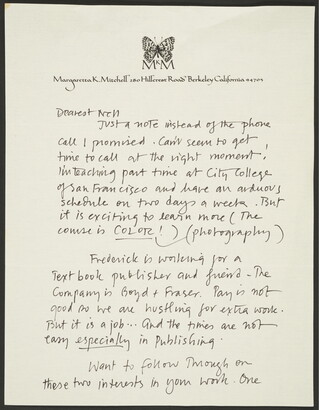 McM
Margaretta K. Mitchell 280 Hillcrest Road Berkeley California 94705
Dearest Nell
Just a note instead of the phone
call I promised. Can't seem to get
time to call at the right moment!
I'm teaching part time at City College
of San Francisco and have an arduous
schedule on two days a week. But
it is exciting to learn more (The
course is COLOR!) (photography)
Frederick is working for a
Text book publisher and friend - The
Company is Boyd + Fraser. Pay is not
good so we are hustling for extra work.
But it is a job... And the times are not
easy especially in publishing.
Want to follow through on
these two interests in your work. One